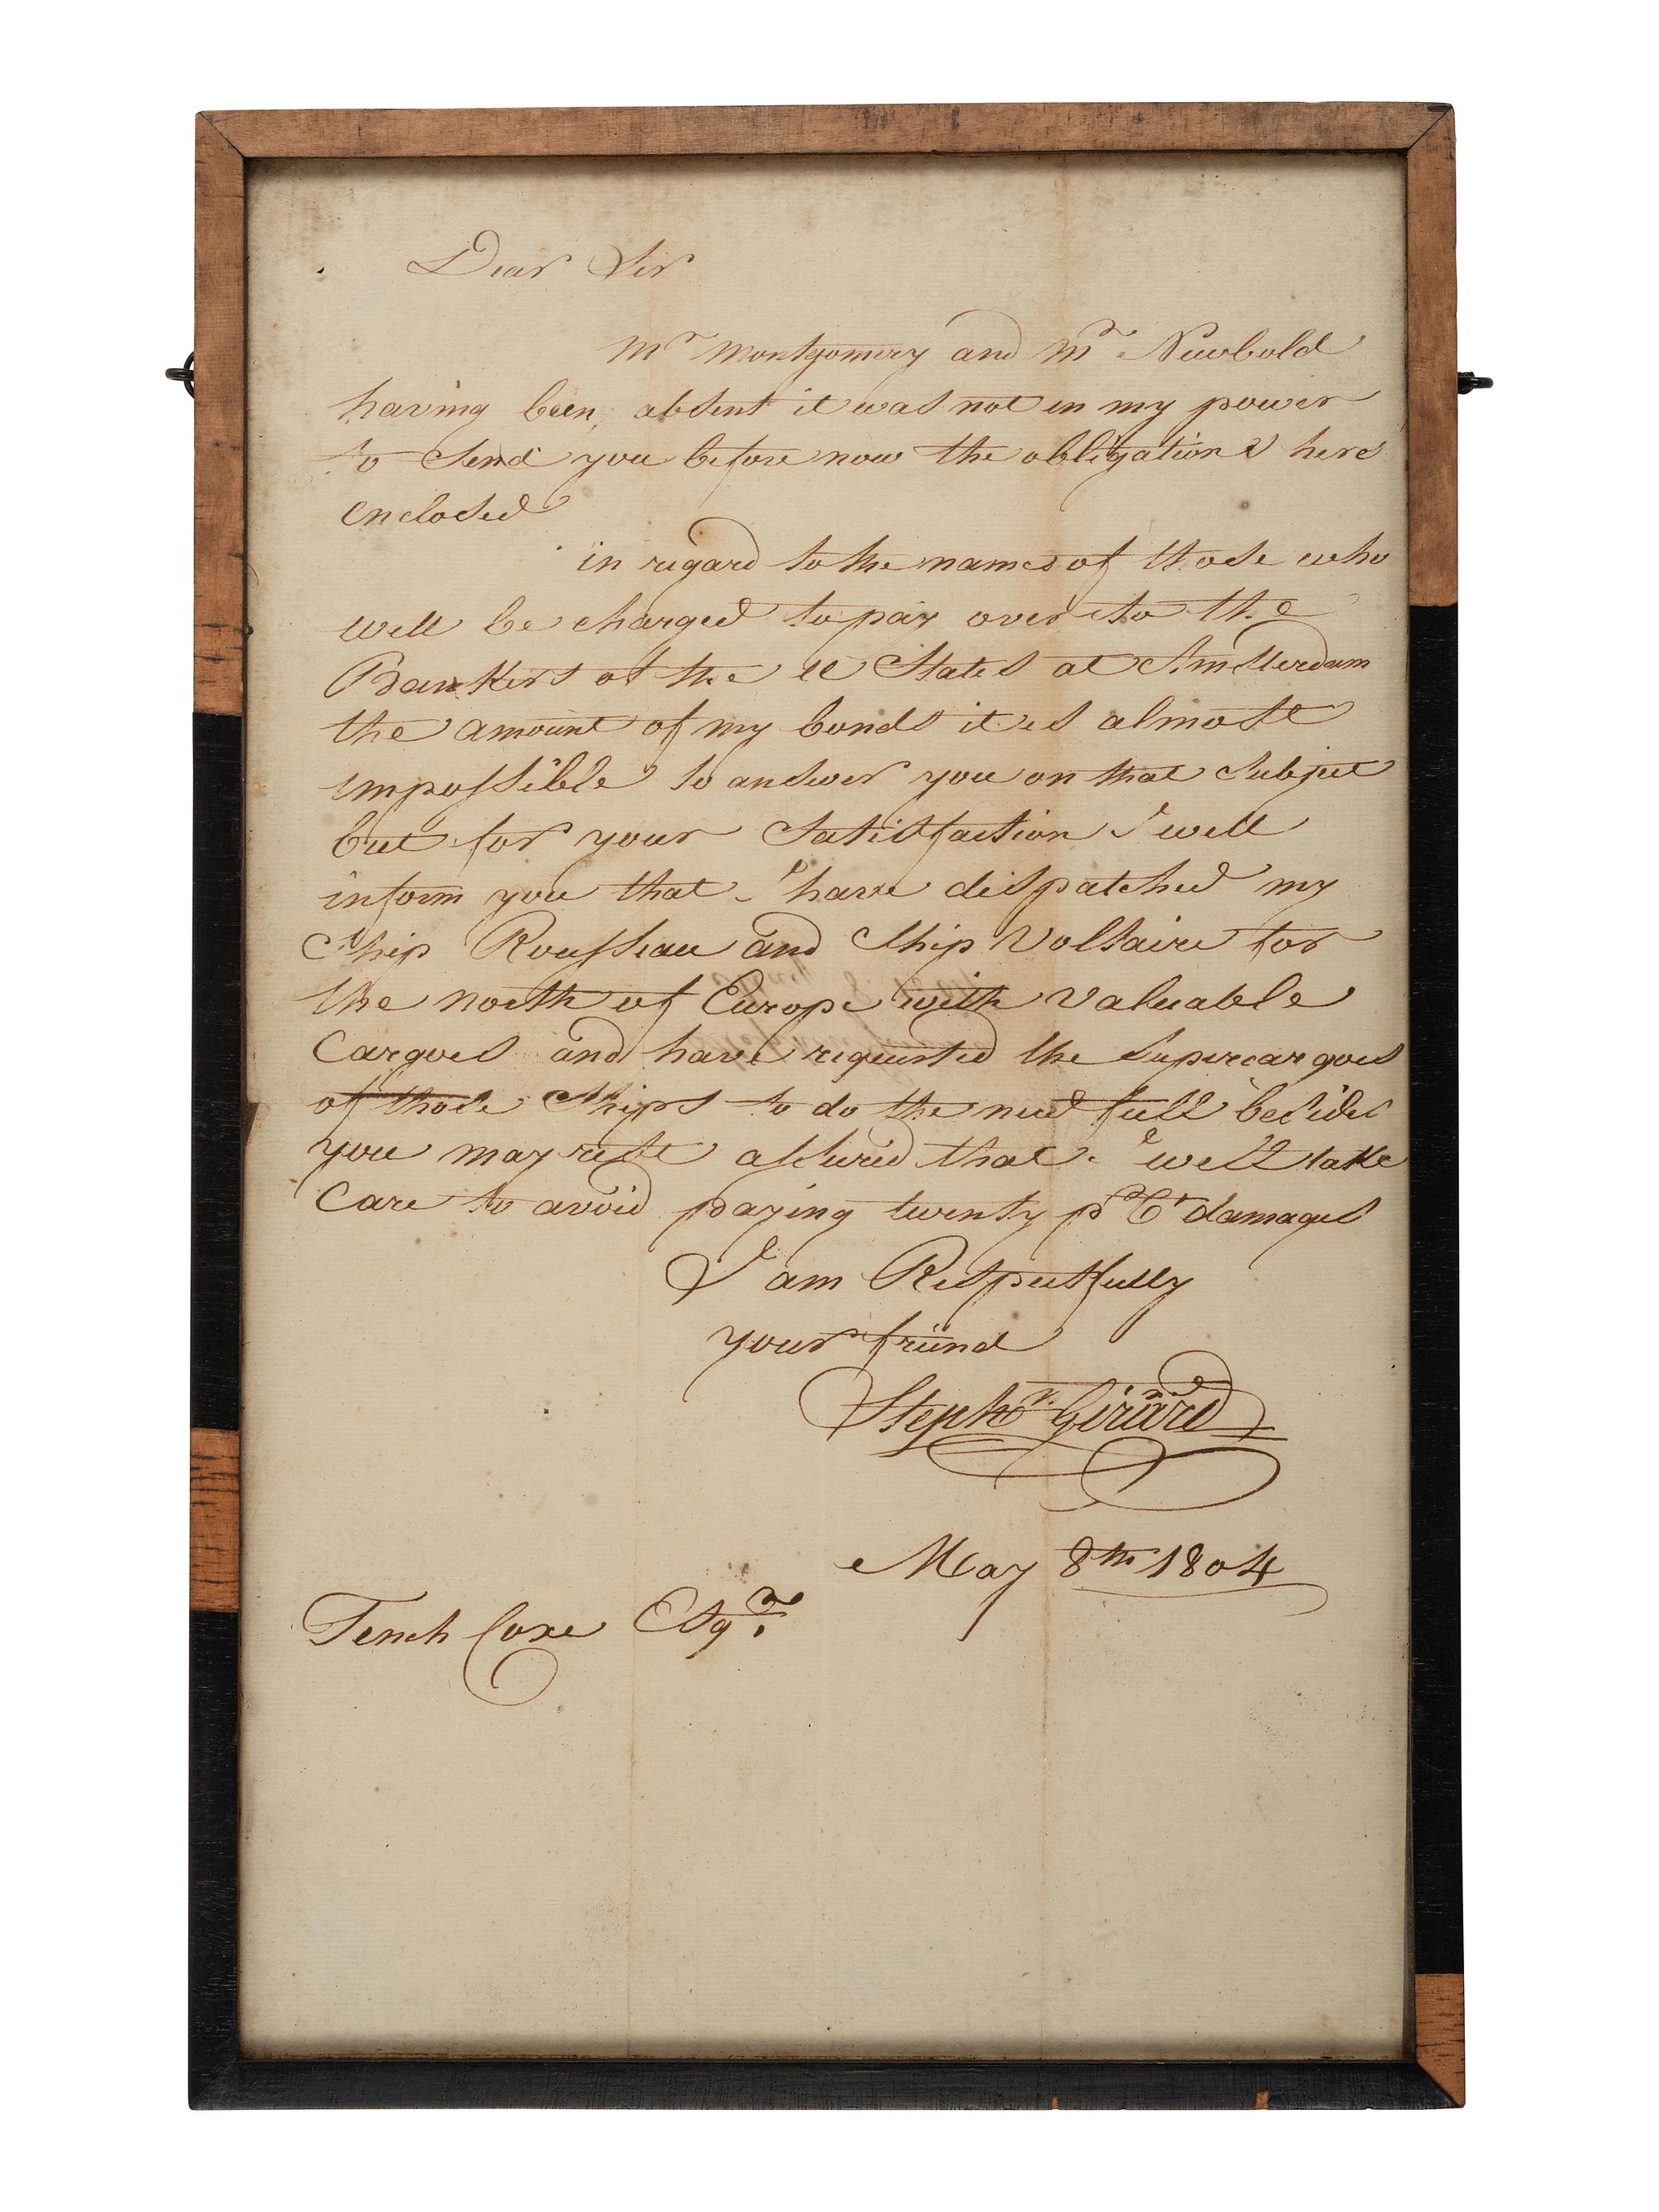 Dear Sir
Mr Montgomery and Mr Newbold
having been absent it was not in my power
to Send you before now the obligations here
enclosed
in regard to the names of those who
will be charged to pay over to the
Bankers of the U States at Amsterdam
the amount of my bonds it is almost
impossible to answer you on that Subject
but for your Satisfaction I will
inform you that I have dispatched my
Ship Rousseau and Ship Voltaire for
the north of Europe with valuable
Cargoes and have requested the Supercargoes
of those Ships to do the need full besides
you may rest assured that I will take
Care to avoid paying twenty p Ct damages
I am Respectfully
your friend
Stephn Girard
May 8th 1804
Tench Coxe Esqr.